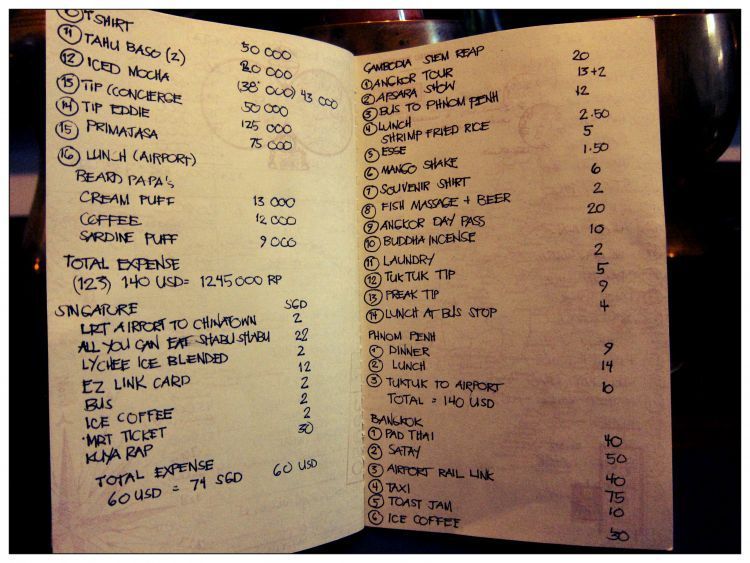 10 T SHIRT
11 TAHU BASO (2) 50 000
12 ICED MOCHA 20 000
13 TIP (CONCIERGE (38 000) 43 000
14 TIP EDDIE 50 000
15 PRIMAJASA 125 000
75 000
16 LUNCH (AIRPORT)
BEARD PAPA'S
CREAM PUFF 13 000
COFFEE 12 000
SARDINE PUFF 9 000
TOTAL EXPENSE
(123) 140 USD = 1245000 RP
SINGAPURE SGD
LRT AIRPORT TO CHINATOWN 2
ALL YOU CAN EAT SHABU SHABU 22
LYCHEE ICE BLENDED 2
EZ LINK CARD 12
BUS 2
ICE COFFEE 2
MRT TICKET 2
KUYA RAP 30
TOTAL EXPENSE 60 USD
60 USD = 74 SGD
CAMBODIA SIEM REAP
1 ANGKOR TOUR 20
2 APSARA SHOW 13+2
3 BUS TO PHNOM PENH 12
4 LUNCH
SHRIMP FRIED RICE 2.50
5 ESSE 5
6 MANGO SHAKE 1.50
7 SOUVENIR SHIRT 6
8 FISH MASSAGE + BEER 2
9 ANGKOR DAY PASS 20
10 BUDDHA INCENSE 10
11 LAUNDRY 2
12 TUKTUK TIP 5
13 FREAK TIP 9
14 LUNCH AT BUS STOP 4
PHNOM PENH
1 DINNER 9
2 LUNCH 14
3 TUKTUK TO AIRPORT 10
TOTAL = 140 USD
BANGKOK
1 PAD THAI 40
2 SATAY 50
3 AIRPORT RAIL LINK 40
4 TAXI 75
5 TOAST JAM 10
6 ICE COFFEE 30